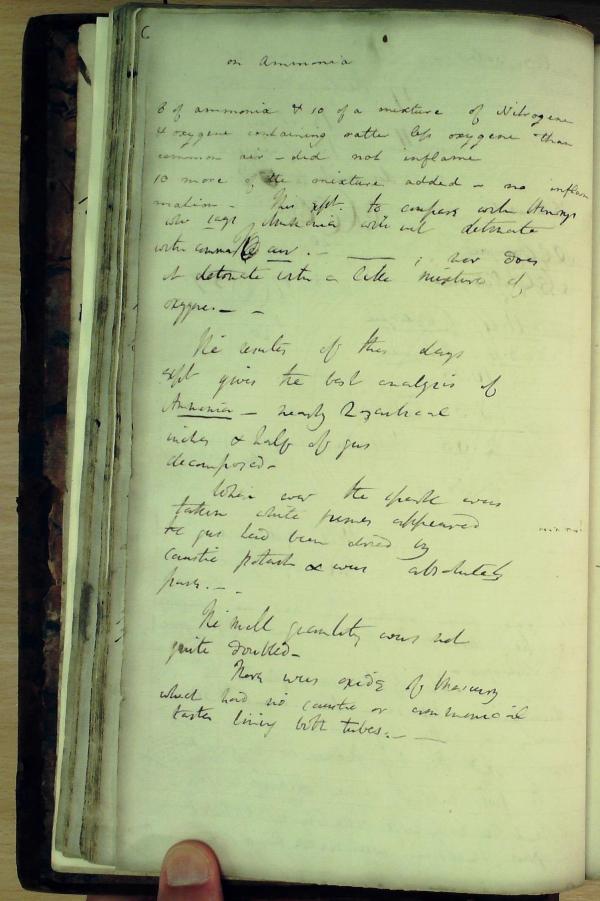 6
on Ammonia
8 of ammonia & 10 of a mixture of Nitrogene
& oxygene containing rather less oxygene than
common air - did not inflame
10 more of the mixture added - no inflam
mation - This expt. to compare with Henrys
who says Ammonia will not detonate
with common air. - ; nor does
it detonate with a like mixture of
oxygene - -
The results of this days
expt gives the best analysis of
Ammonia - nearly 2 cubical
inches & half of gas
decomposed -
When ever the spark was
taken white fumes appeared
the gas had been dried by
caustic potash & was absolutely
pure. - -
The small quantity was not
quite doubled -
There was oxide of Mercury
which had no caustic or ammoniacal
taste lining both tubes. - -